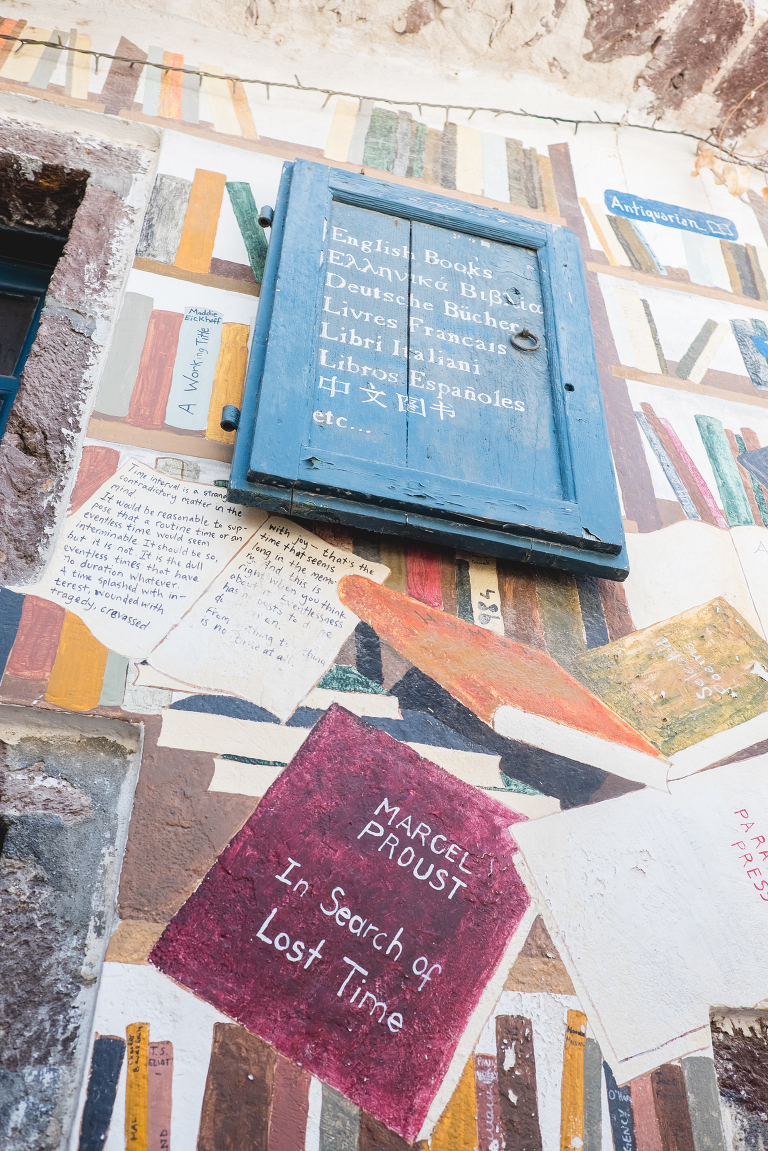 Antiquarian
English Books
Ελληνικά Βιβλία
Deutsche Bücher
Livres Francais
Libri Italiani
Libros Españoles
中文图书
etc...
Maddie
Eickhoff
A Working Title
Time interval is a strange
contradictory matter in the
mind.
It would be reasonable to sup-
pose that a routine time or an
eventless time would seem
interminable. It should be so,
but it is not. It is the dull
eventless times that have
no duration whatever.
A time splashed with in-
terest, wounded with
tragedy, crevassed
with joy — that's the
time that seems
long in the
And this is
right when you think
eventlessness
is no
at all.
1984
MARCEL
PROUST
In Search of
Lost Time
PARA
PRESS
T.S.
ELIOT